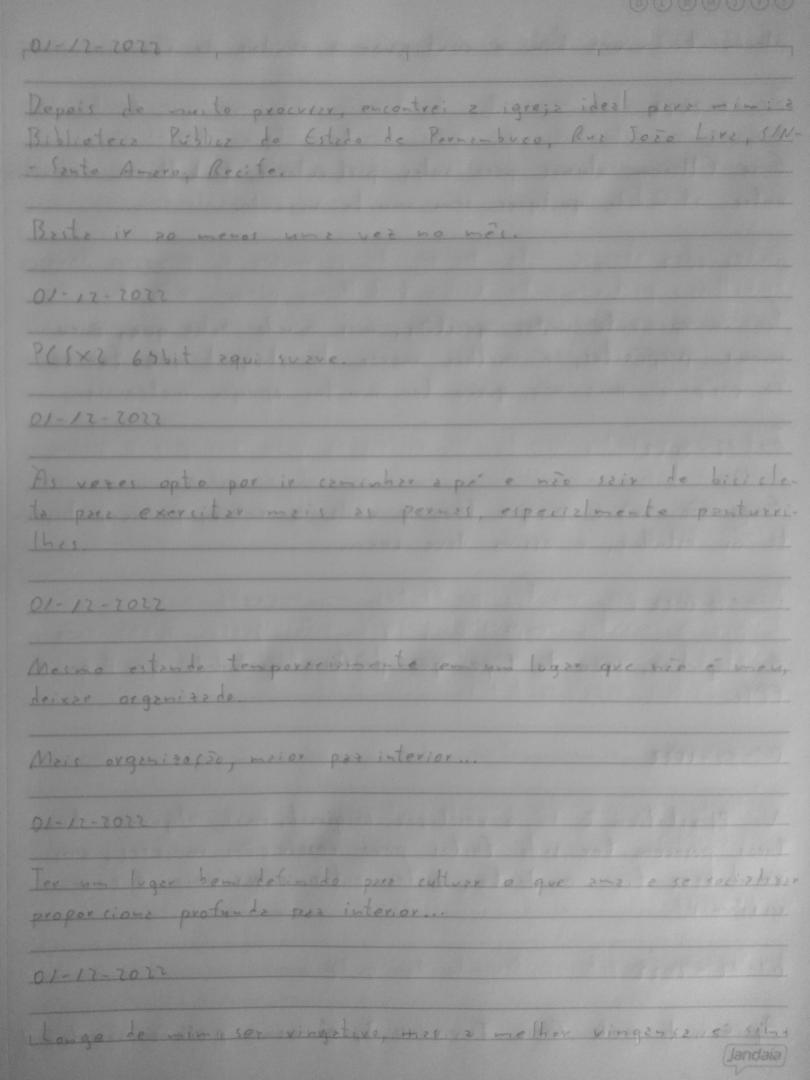 01-12-2022
Depois de muito procurar, encontrei a igreja ideal para mim: a
Biblioteca Pública do Estado de Pernambuco, Rua João Lira, S/N-
- Santo Amaro, Recife.
Basta ir ao menos uma vez no mês.
01-12-2022
PCSX2 64bit aqui suave.
01-12-2022
As vezes opto por ir caminhar a pé e não sair de bicicle-
ta para exercitar mais as pernas, especialmente panturri-
lhas.
01-12-2022
Mesmo estando temporariamente em um lugar que não é meu,
deixar organizado.
Mais organização, maior paz interior...
01-12-2022
Ter um lugar bem definido para cultuar o que ama e se socializar
proporciona profunda paz interior...
01-12-2022
Longe de mim ser vingativo, mas a melhor vingança é
Jandaia